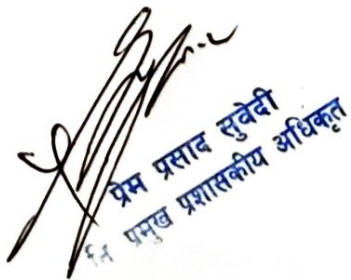 प्रेम प्रसाद सुवेदी
नि प्रमुख प्रशासकीय अधिकृत